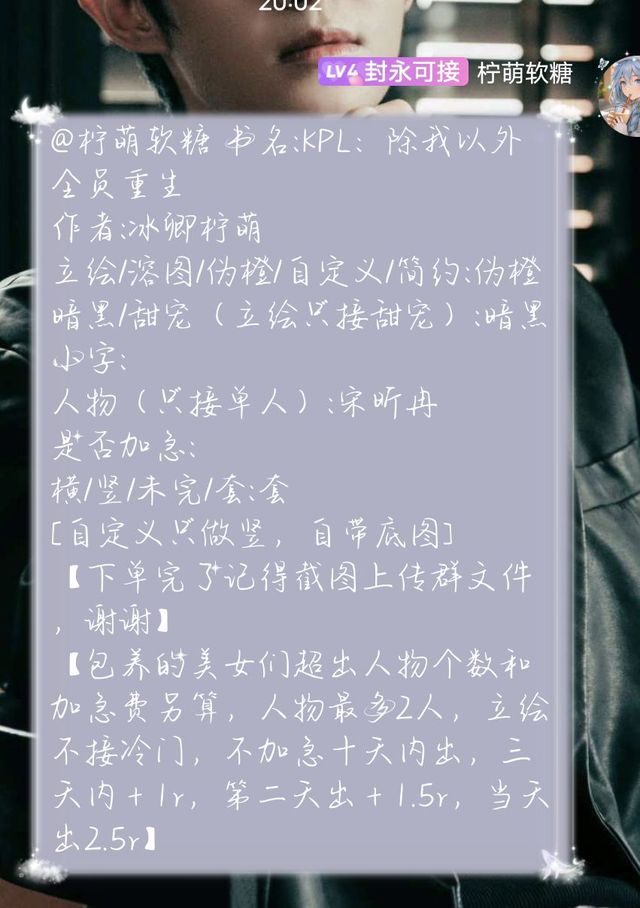 20:02
LV4 封永可接 柠萌软糖
@柠萌软糖 书名:KPL：除我以外
全员重生
作者:冰卿柠萌
立绘/溶图/伪橙/自定义/简约:伪橙
暗黑/甜宠（立绘只接甜宠）:暗黑
小字:
人物（只接单人）:宋昕冉
是否加急:
横/竖/未完/套:套
[自定义只做竖，自带底图]
【下单完了记得截图上传群文件
，谢谢】
【包养的美女们超出人物个数和
加急费另算，人物最多2人，立绘
不接冷门，不加急十天内出，三
天内+1r，第二天出+1.5r，当天
出2.5r】